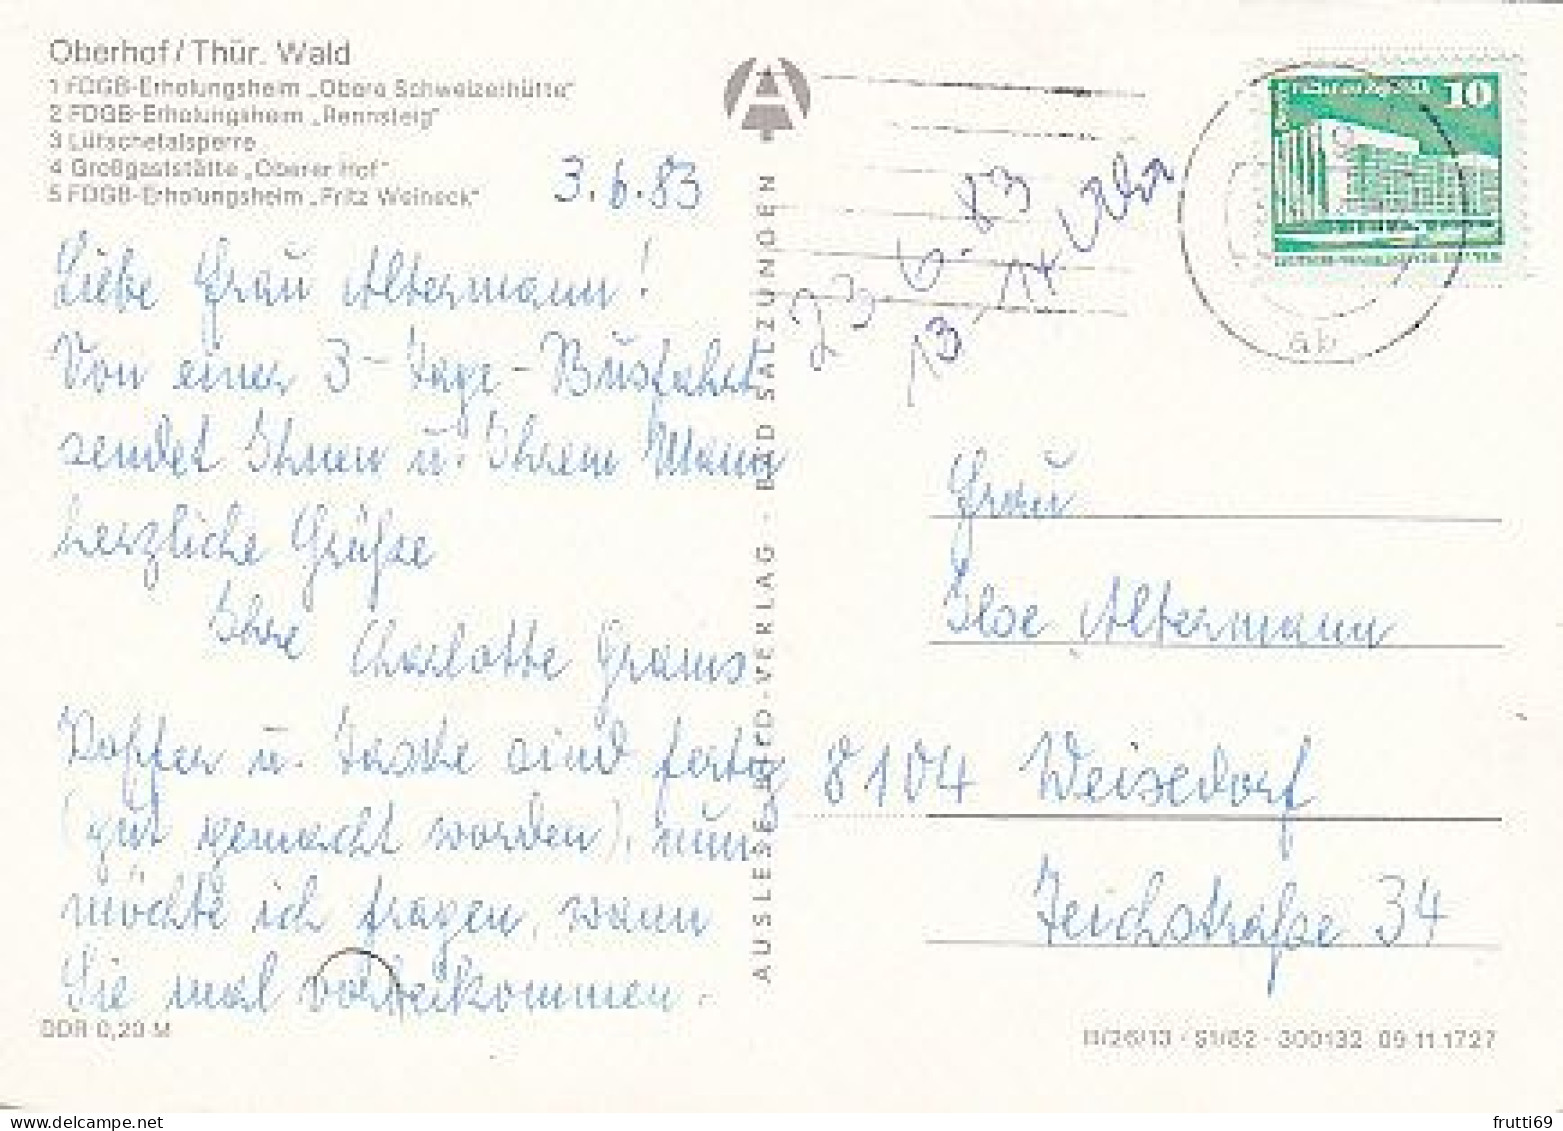 Oberhof/Thür. Wald
1 FDGB-Erholungsheim „Obere Schweizerhütte“
2 FDGB-Erholungsheim „Rennsteig“
3 Lütschetalsperre
4 Großgaststätte „Oberer Hof“
5 FDGB-Erholungsheim „Fritz Weineck“
3.6.83
Liebe Frau Altermann!
Von einer 3-Tage-Busfahrt
sendet Ihnen u. Ihrem Mann
herzliche Grüße
Ihre Charlotte
Koffer u. Tasche sind fertig
(gut gemacht worden), nun
möchte ich fragen, wann
Sie mal vorbeikommen.
DDR 0,20 M
AUSLESE-BILD-VERLAG · BAD SALZUNGEN
23.6.83
13
10
ab
Frau
Ilse Altermann
8104 Weixdorf
Teichstraße 34
B/26/13 · S1/82 · 300132 09 11 1727
frutti69